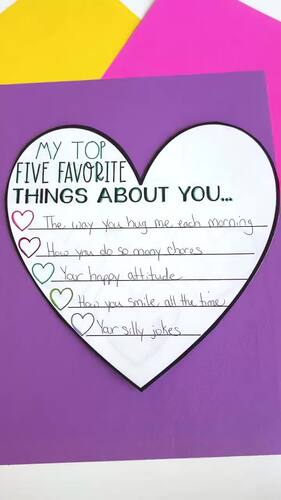 MY TOP
FIVE FAVORITE
THINGS ABOUT YOU...
The way you hug me each morning
How you do so many chores
Your happy attitude
How you smile all the time
Your silly jokes